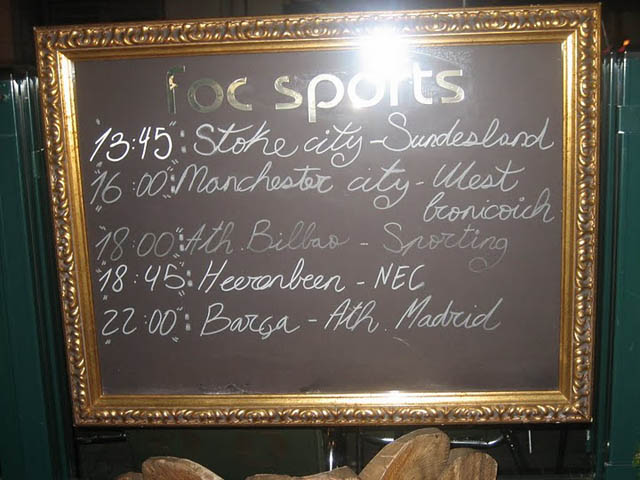 foc sports
"13:45": Stoke city - Sundesland
"16:00": Manchester city - West
bronicoich
"18:00": Ath. Bilbao - Sporting
"18:45": Heerenbeen - NEC
"22:00": Barça - Ath. Madrid